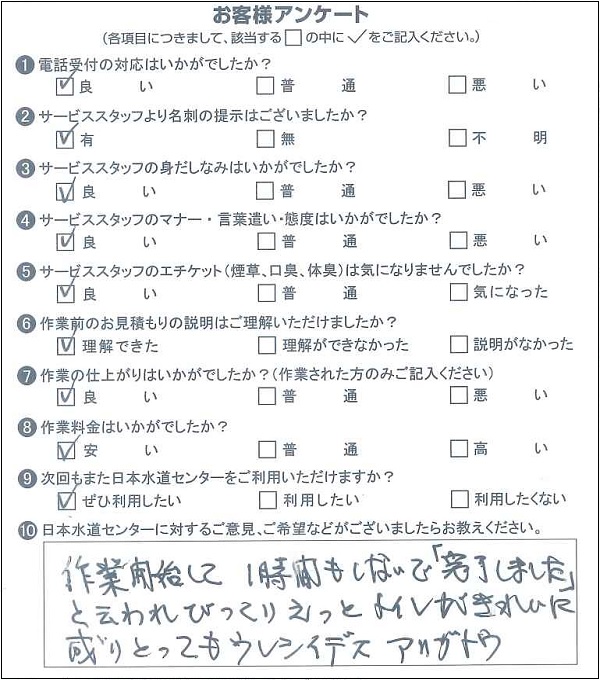 お客様アンケート
(各項目につきまして、該当する□の中に✓をご記入ください。)
❶ 電話受付の対応はいかがでしたか?
☑ 良い □ 普通 □ 悪い
❷ サービススタッフより名刺の提示はございましたか?
☑ 有 □ 無 □ 不明
❸ サービススタッフの身だしなみはいかがでしたか?
☑ 良い □ 普通 □ 悪い
❹ サービススタッフのマナー・言葉遣い・態度はいかがでしたか?
☑ 良い □ 普通 □ 悪い
❺ サービススタッフのエチケット(煙草、口臭、体臭)は気になりませんでしたか?
☑ 良い □ 普通 □ 気になった
❻ 作業前のお見積もりの説明はご理解いただけましたか?
☑ 理解できた □ 理解ができなかった □ 説明がなかった
❼ 作業の仕上がりはいかがでしたか?(作業された方のみご記入ください)
☑ 良い □ 普通 □ 悪い
❽ 作業料金はいかがでしたか?
☑ 安い □ 普通 □ 高い
❾ 次回もまた日本水道センターをご利用いただけますか?
☑ ぜひ利用したい □ 利用したい □ 利用したくない
❿ 日本水道センターに対するご意見、ご希望などがございましたらお教えください。
作業開始して 1時間もしないで「完了しました」
と云われびっくりえっとトイレがきれいに
成りとってもウレシイデス アリガトウ